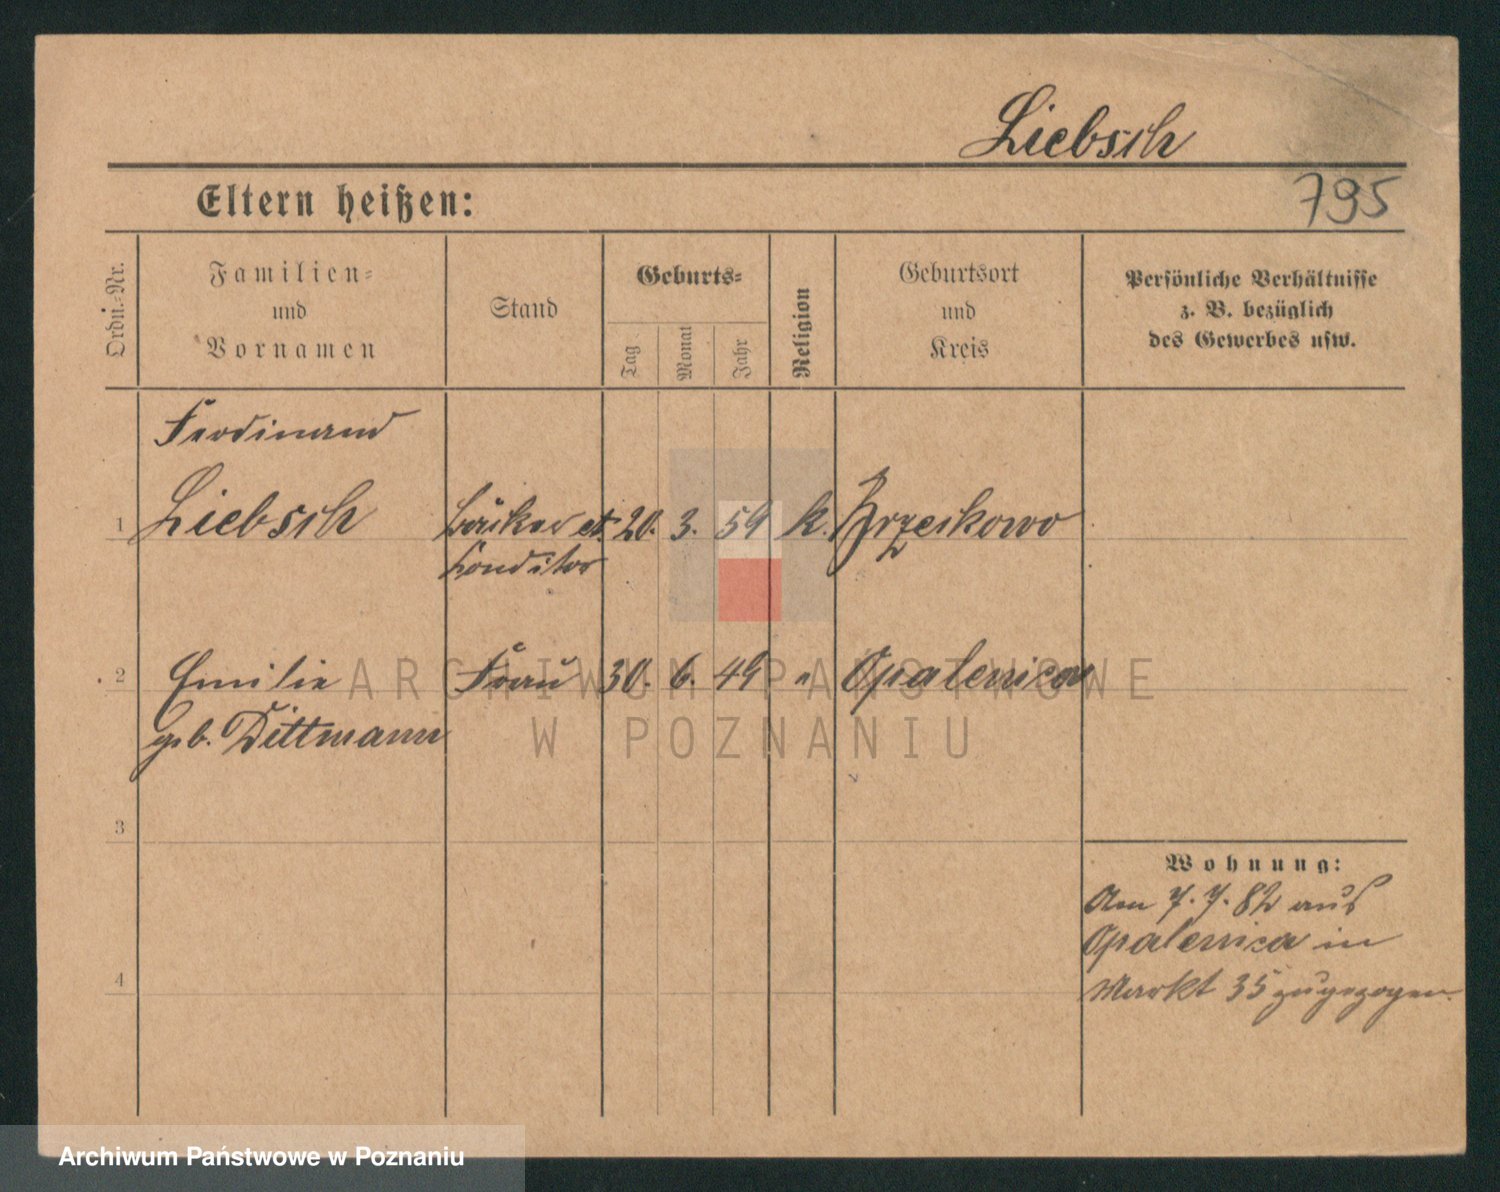 Liebsch
Eltern heißen:
795
Ordn.-Nr.
Familien-
und
Vornamen
Stand
Geburts-
Tag
Monat
Jahr
Religion
Geburtsort
und
Kreis
Persönliche Verhältnisse
z. B. bezüglich
des Gewerbes usw.
Ferdinand
1 Liebsch Bäcker et. 20. 3. 59 k.
Conditor
2 Emilie Frau 30. 6. 49 " Opalenica
geb. Dittmann
3
4
Wohnung:
Am 7. 7. 82 aus
Opalenica in
Markt 35 zugezogen.
ARCHIWUM PAŃSTWOWE
W POZNANIU
Archiwum Państwowe w Poznaniu